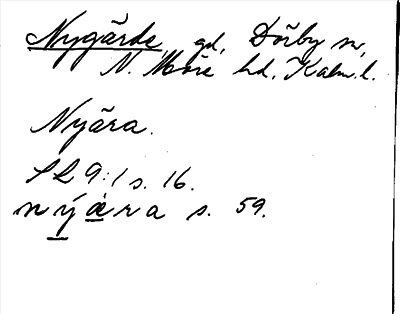 Nygärde, gd, Dörby sn,
N. Möre hd, Kalm. l.
Nyära.
SL 9:1 s. 16.
nýära s. 59.